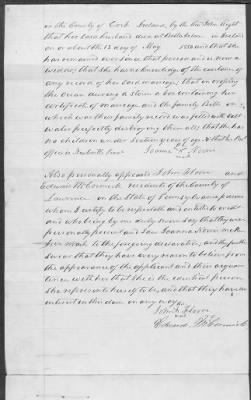 in the County of Cork Ireland, by the Rev John
that her said husband died at
on or about the 12 day of May 18 and that she
has remained ever since that period and is now a
widow; that she has no knowledge of the existence of
any record of her said marriage; that on crossing
the Ocean during a storm a box containing her
certificate of marriage and the family Bible in
which was their family record was filled with salt
water perfectly destroying them all; that she has
no children under sixteen years of age & that her Post
office is
her
mark
Also personally appeared John and
Edward McCormick residents of the County of
Lawrence in the State of Pennsylvania persons
whom I certify to be respectable and entitled to credit
and who being by me duly sworn say that they were
personally present and saw Joanna make
her mark to the foregoing declaration, and they further
swear that they have every reason to believe from
the appearance of the applicant and their acquain
tance with her that she is the identical person
she represents herself to be and that they have no
interest in this claim in any way
John
Edward McCormick